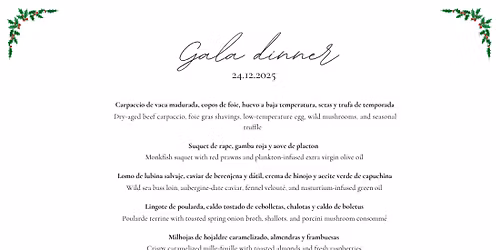 Gala dinner
24.12.2025
Carpaccio de vaca madurada, copos de foie, huevo a baja temperatura, setas y trufa de temporada
Dry-aged beef carpaccio, foie gras shavings, low-temperature egg, wild mushrooms, and seasonal
truffle
Suquet de rape, gamba roja y aove de placton
Monkfish suquet with red prawns and plankton-infused extra virgin olive oil
Lomo de lubina salvaje, caviar de berenjena y dátil, crema de hinojo y aceite verde de capuchina
Wild sea bass loin, aubergine-date caviar, fennel velouté, and nasturtium-infused green oil
Lingote de poularda, caldo tostado de cebolletas, chalotas y caldo de boletus
Poularde terrine with toasted spring onion broth, shallots, and porcini mushroom consommé
Milhojas de hojaldre caramelizado, almendras y frambuesas
Crispy caramelized mille-feuille with toasted almonds and fresh raspberries